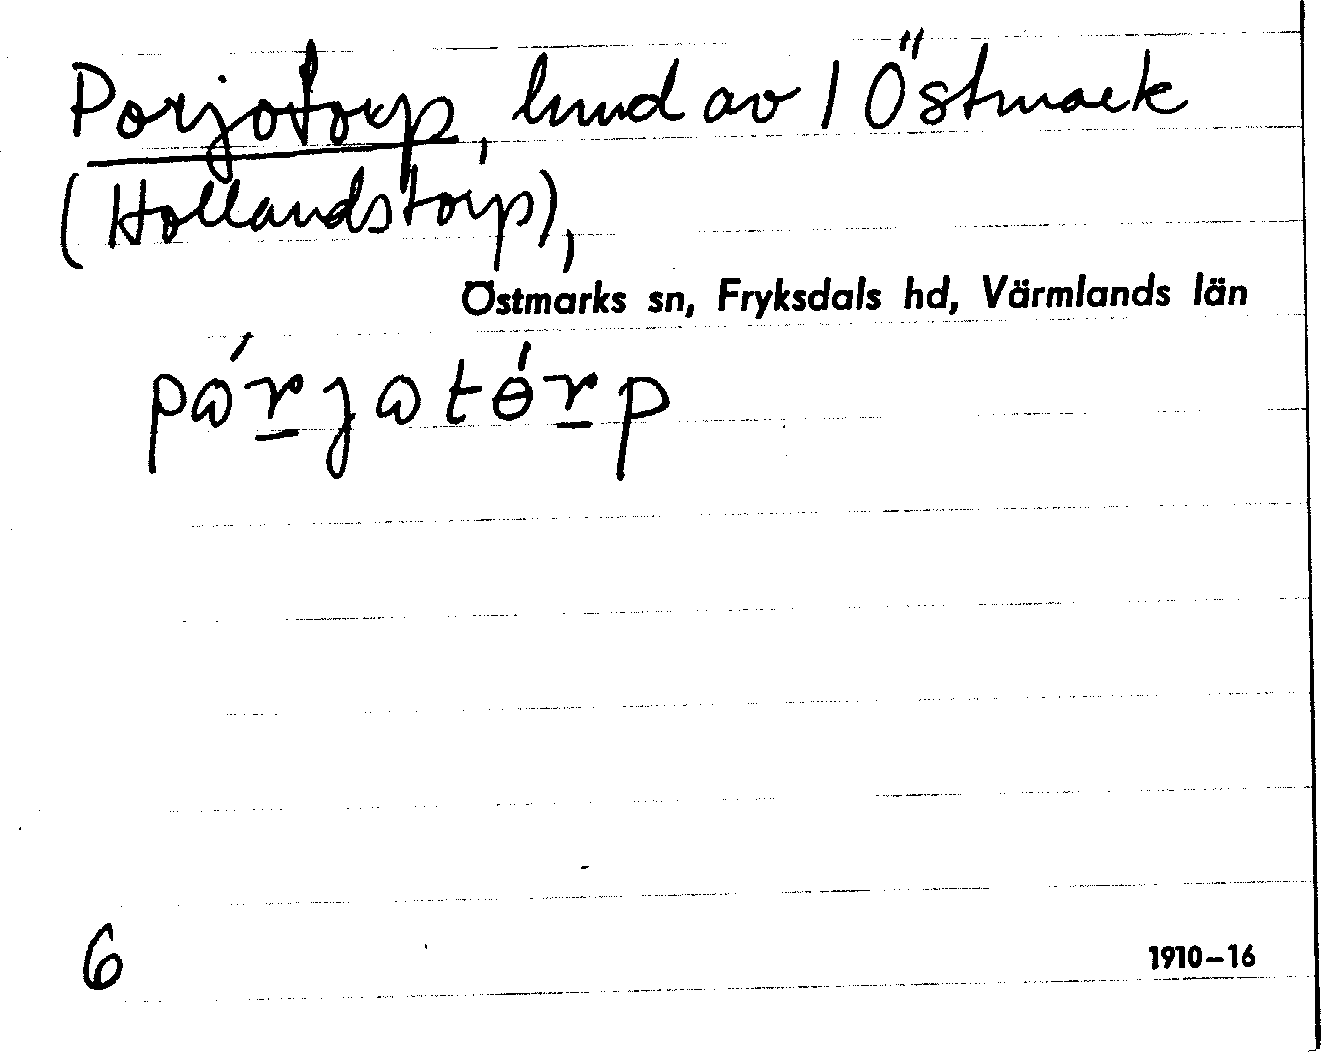 Porjotorp, lund av 1 Östmark
(Hollandstorp),
Östmarks sn, Fryksdals hd, Värmlands län
pɷ́r̲jɷtɵ́r̲p
6
1910–16